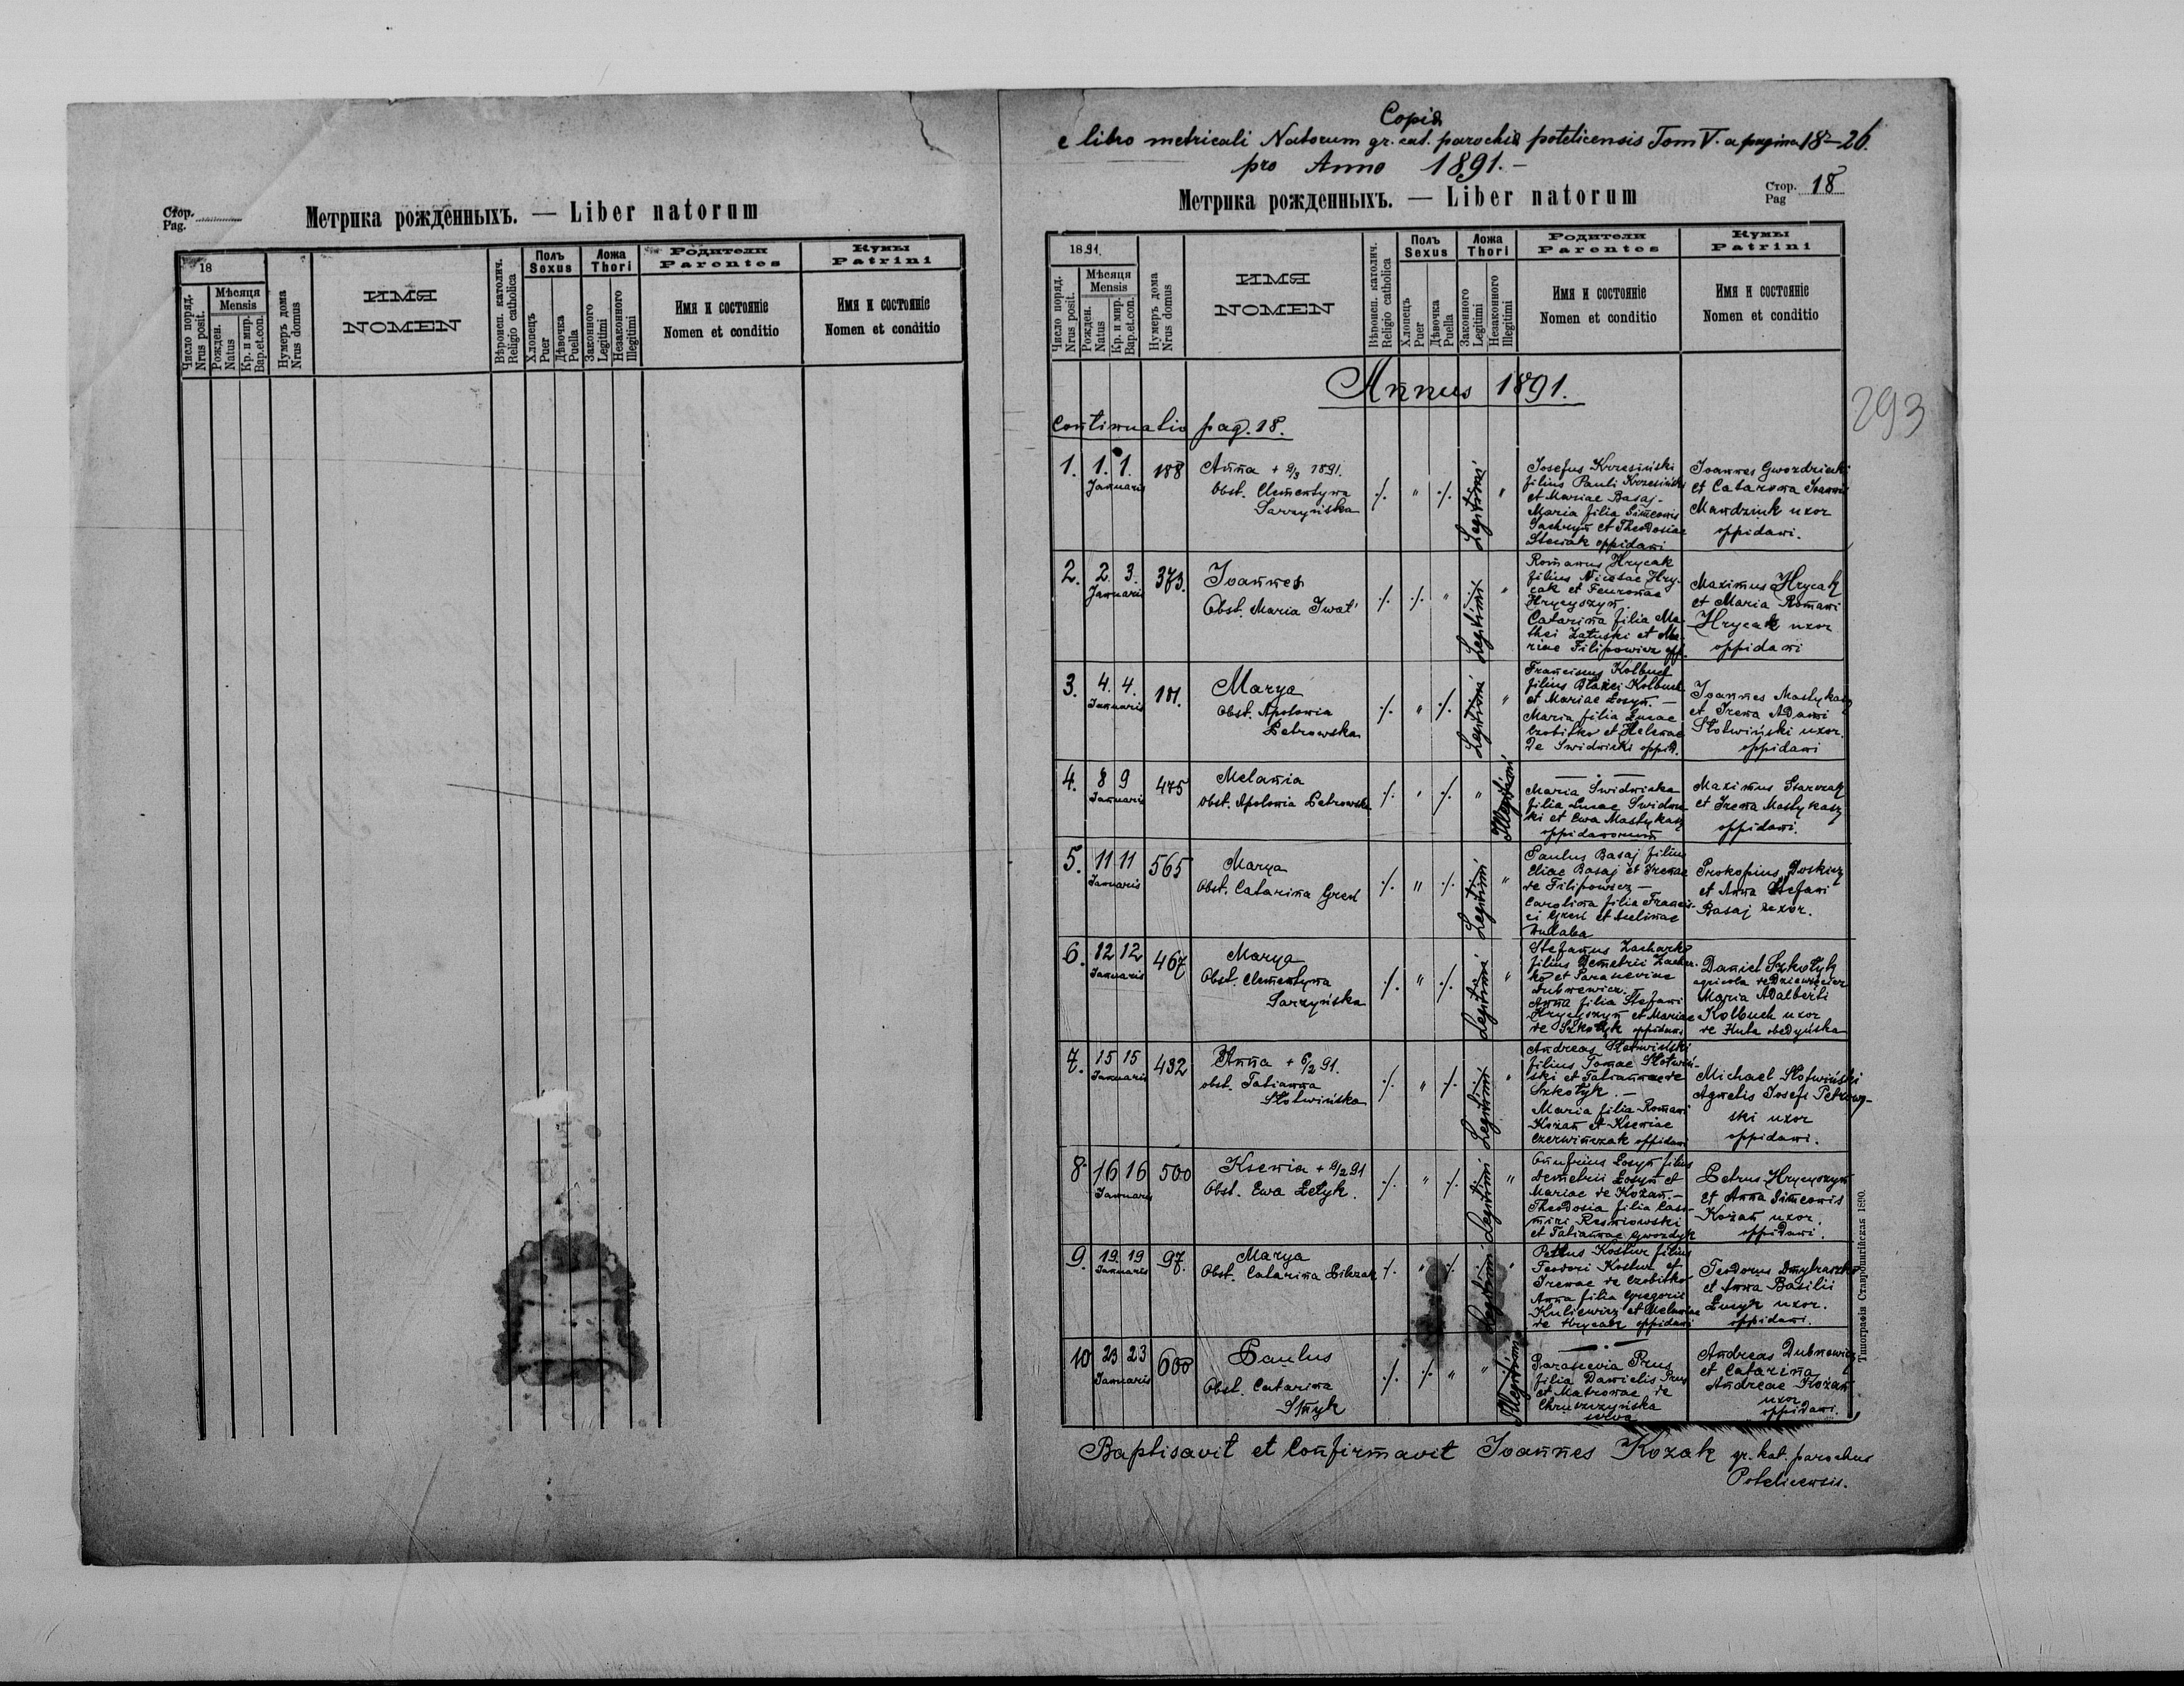 Стор.
Pag.
Метрика рожденныхъ. — Liber natorum
18
Число поряд.
Nrus posit.
Мѣсяця
Mensis
Рожден.
Natus
Кр. и мир.
Bap.et.con.
Нумеръ дома
Nrus domus
ИМЯ
NOMEN
Вѣроисп. католич.
Religio catholica
Полъ
Sexus
Хлопецъ
Puer
Дѣвочка
Puella
Ложа
Thori
Законного
Legitimi
Незаконного
Illegitimi
Родители
Parentes
Имя и состоянiе
Nomen et conditio
Кумы
Patrini
Имя и состоянiе
Nomen et conditio
Copia
e libro metricali Natorum gr. cat. parochiae potelicensis Tom V. a pagina 18-26.
pro Anno 1891.-
Метрика рожденныхъ. — Liber natorum
Стор. 18
Pag
1891.
Число поряд.
Nrus posit.
Мѣсяця
Mensis
Рожден.
Natus
Кр. и мир.
Bap.et.con.
Нумеръ дома
Nrus domus
ИМЯ
NOMEN
Вѣроисп. католич.
Religio catholica
Полъ
Sexus
Хлопецъ
Puer
Дѣвочка
Puella
Ложа
Thori
Законного
Legitimi
Незаконного
Illegitimi
Родители
Parentes
Имя и состоянiе
Nomen et conditio
Кумы
Patrini
Имя и состоянiе
Nomen et conditio
Annus 1891.
293
Continuatio pag. 18.
1. 1. 1. 188
Januaris
Anna + 9/3 1891.
Obst. Clementyna
Sarzyńska
./. " ./. Legitimi "
Josefus Krzesiński
filius Pauli Krzesiński
et Mariae Basaj-
Maria filia Simeonis
et Theodosiae
oppidani
Joannes
et Catarona Joannis
Mandziuk uxor
oppidani.
2. 2. 3. 373.
Januaris
Joannes
Obst. Maria Iwat'
./. ./. " Legitimi "
Romanus Hrycak
filius Nicolae Hry-
cak et Feuronae
Hrycyszyn.
Catarina filia Ma-
thei Załuski et Ma-
riae Filipowicz opp.
Maximus Hrycak
et Maria Romani
Hrycak uxor
oppidani
3. 4. 4. 181.
Januaris
Marya
Obst. Apolonia
Petrowska
./. " ./. Legitimi "
Franciscus Kolbuch
filius Błażei Kolbuch
et Mariae Łosyn. -
Maria filia Lucae
Czobitko et Helenae
de Swidnicki oppid.
Joannes Mastykasz
et Irena Adami
Słotwiński uxor.
oppidani
4. 8 9 475
Januaris
Melania
obst. Apolonia Petrowska
./. " ./. " Illegitimi
Maria Swidnicka
filia Lucae Swidnic
ki et Ewa Mastykasz
oppidanorum
Maximus Starczak
et Irena Mastykasz
oppidani.
5. 11 11 565
Januaris
Marya
Obst. Catarina Gresl
./. " ./. Legitimi "
Paulus Basaj filius
Eliae Basaj et Irenae
de Filipowicz -
Carolina filia Francis-
ci Gresl et
Prokopius
et Anna Stefani
Basaj uxor.
6. 12 12 467
Januaris
Marya
Obst. Clementyna
Sarzyńska
./. " ./. Legitimi "
Stefanus Zacharko
filius Demetrii Zachar-
ko et Parasceviae
Dubnewicz. -
Anna filia Stefani
Hrycyszyn et Mariae
de Szkołyk oppidani
Daniel Szkołyk
agricola de Dziewięcierz
Maria Adalberti
Kolbuch uxor
de Huta obedyńska
7. 15 15 432
Januaris
Anna + 6/2 91.
obst. Tatianna
Słotwińska
./. " ./. Legitimi "
Andreas Słotwiński
filius Tomae Słotwiń-
ski et Tatiannae de
Szkołyk. -
Maria filia Romani
Kożan et Kseniae
Czerwinczak oppidani
Michael Słotwiński
Agnetis Josefi Petrow-
ski uxor
oppidani.
8. 16 16 500
Januaris
Ksenia + 9/2 91
Obst. Ewa Łetyk.
./. " ./. Legitimi "
Onufrius Łosyn filius
Demetrii Łosyn et
Mariae de Kożan. -
Theodosia filia Casi-
miri
et Tatiannae Gwozdyk
Petrus Hrycyszyn
et Anna Simeonis
Kożan uxor.
oppidani.
9. 19. 19 97.
Januaris
Marya
Obst. Catarina Bilczak
./. " ./. Legitimi "
Petrus Kostur filius
Teodori Kostur et
Irenae de Czobitko
Anna filia Gregorii
Kuliewicz et Melaniae
de Hrycak oppidani
Teodorus Dmytraszko
et Anna Basilii
Łucyk uxor.
oppidani.
10 23 23 600
Januaris
Paulus
Obst. Catarina
Smyk
./. ./. " " Illegitimi
Parascevia Prus
filia Danielis Prus
et Matronae de
Chruszczyńska
Andreas Dubnewicz
et Catarina
Andreae Kożan
uxor
oppidani.
Типографія Ставропигійская 1890.
Baptisavit et Confirmavit Joannes Kozak gr. kat. parochus
Potelicensis.